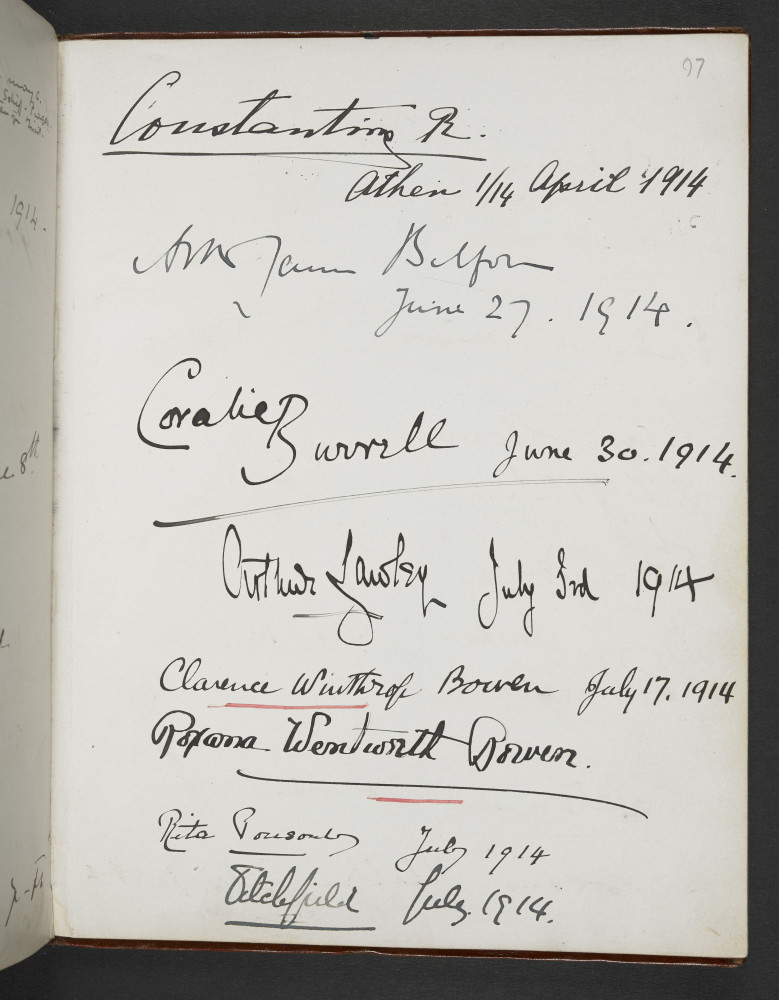 97
Constantin R.
Athen 1/14 April 1914
Arthur James Balfour
June 27. 1914.
Coralie Burrell June 30. 1914.
Arthur Lawley July 3rd 1914
Clarence Winthrop Bowen July 17. 1914
Roxana Wentworth Bowen.
Rita Ponsonby July 1914
Titchfield July 1914.
1914.
8th